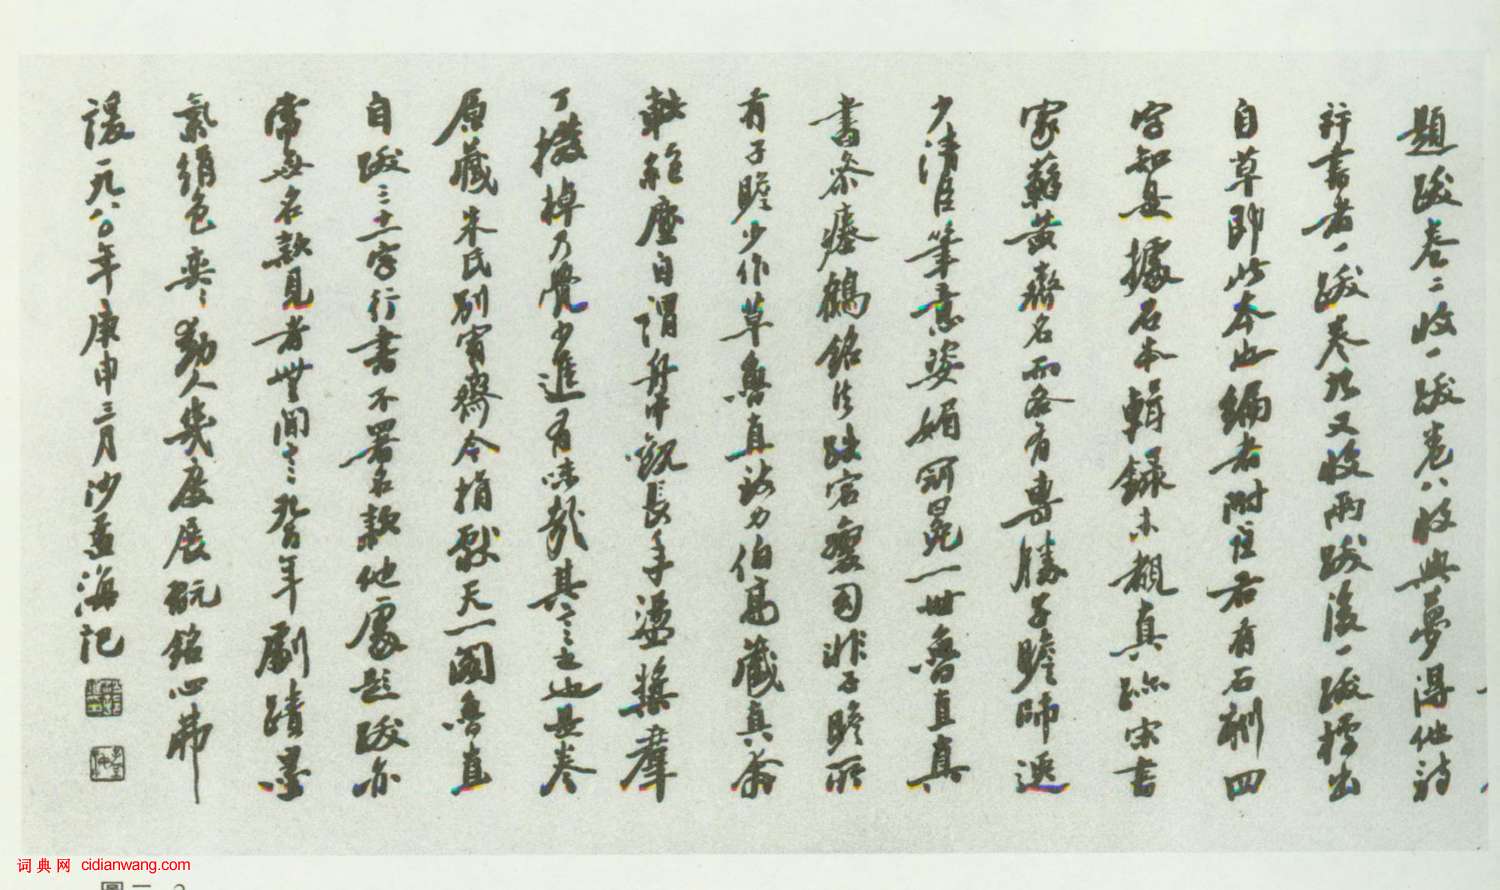 題跋卷二收一跋卷八收與夢得他詩
行書者一跋卷九又收兩跋後一跋標出
自草即此本也編者附注云有石刻四
字知是據石本輯錄未覩真跡宋書
家蘇黃齊名而各有專勝子瞻師遜
少清臣筆意姿媚冠冕一世魯直真
書參瘞鶴銘法跌宕變非子瞻所
有子瞻少作草魯直致力伯高藏真
軼絕塵自謂舟中觀長年盪槳群
丁撥棹乃覺少進有味哉其言之也是卷
原藏朱氏別宥齋今捐獻天一閣魯直
自跋三十一字行書不署名款他處題跋亦
常無名款見者無間言九百年劇蹟墨
氣絹色奕〻動人幾度展玩銘心弗
諼一九八〇年庚申三月沙孟海記
词典网 cidianwang.com